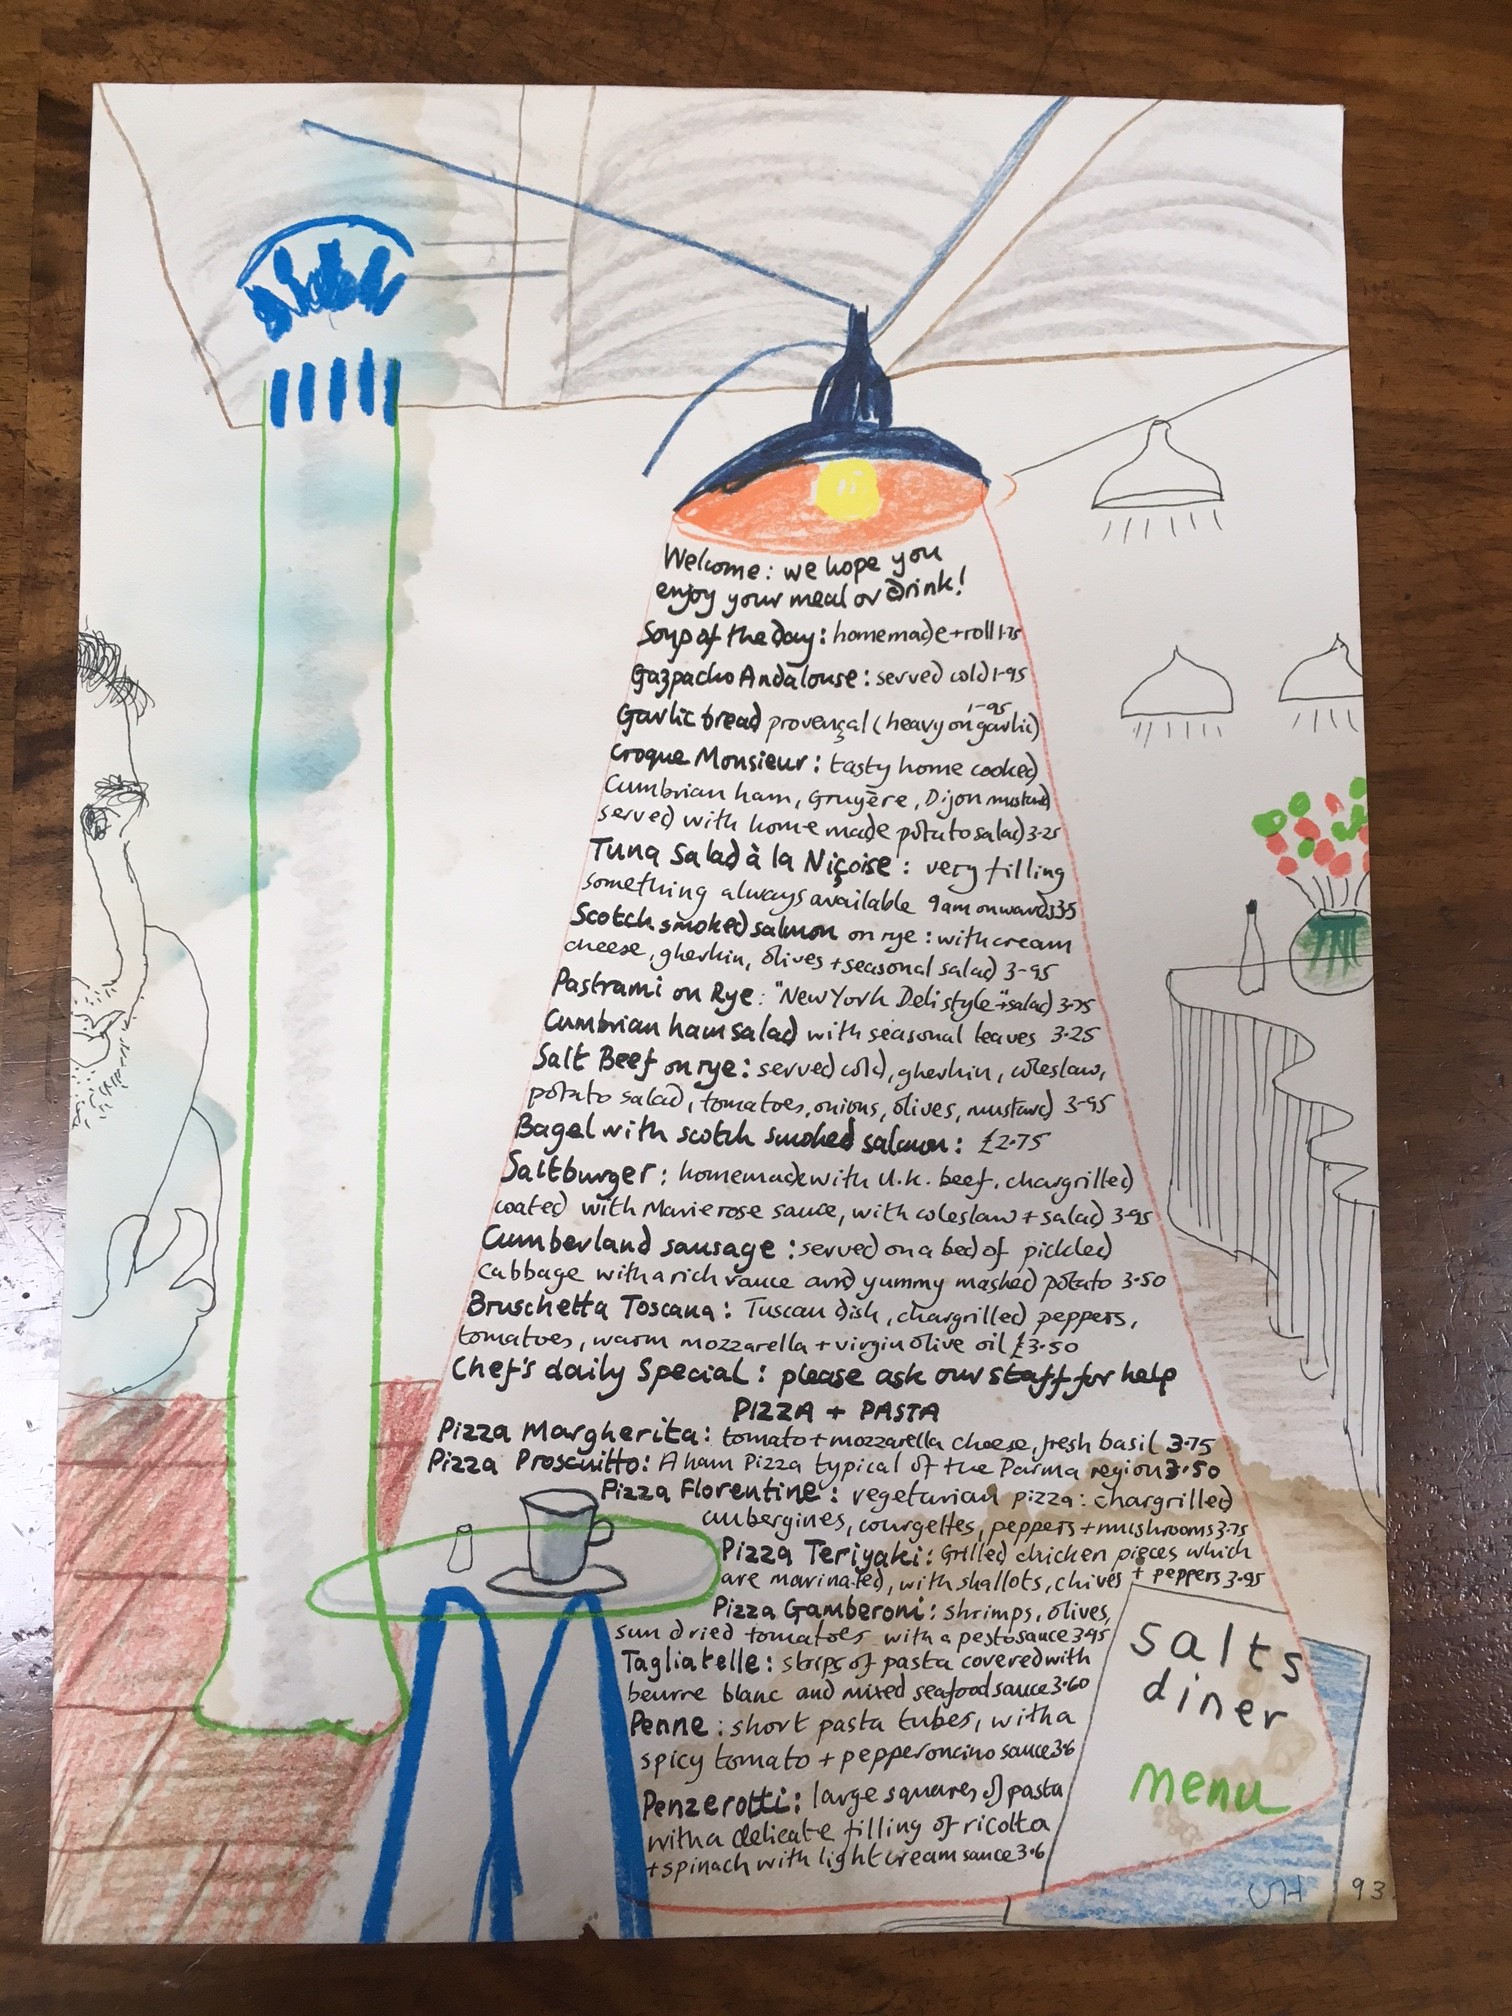 Welcome: we hope you
enjoy your meal or drink!
Soup of the day: homemade + roll 1.75
Gazpacho Andalouse: served cold 1-95
1-95
Garlic bread provençal (heavy on garlic)
Croque Monsieur: tasty home cooked
Cumbrian ham, Gruyère, Dijon mustard
served with home made potato salad 3.25
Tuna Salad à la Niçoise: very filling
something always available 9am onwards 335
Scotch smoked salmon on rye: with cream
cheese, gherkin, olives + seasonal salad 3-95
Pastrami on Rye: "New York Deli style" + salad 3.75
Cumbrian ham salad with seasonal leaves 3.25
Salt Beef on rye: served cold, gherkin, coleslaw,
potato salad, tomatoes, onions, olives, mustard 3-95
Bagel with scotch smoked salmon: £2.75
Saltburger: homemade with U.K. beef, chargrilled
coated with Marie rose sauce, with coleslaw + salad 3-95
Cumberland sausage: served on a bed of pickled
cabbage with a rich sauce and yummy mashed potato 3.50
Bruschetta Toscana: Tuscan dish, chargrilled peppers,
tomatoes, warm mozzarella + virgin olive oil £3.50
Chef's daily Special: please ask our staff for help
PIZZA + PASTA
Pizza Margherita: tomato + mozzarella cheese, fresh basil 3.75
Pizza Proscuitto: A ham Pizza typical of the Parma region 3.50
Pizza Florentine: vegetarian pizza: chargrilled
aubergines, courgettes, peppers + mushrooms 3.75
Pizza Teriyaki: Grilled chicken pieces which
are marinated, with shallots, chives + peppers 3.95
Pizza Gamberoni: shrimps, olives,
sun dried tomatoes with a pesto sauce 3.95
Tagliatelle: strips of pasta covered with
beurre blanc and mixed seafood sauce 3.60
Penne: short pasta tubes, with a
spicy tomato + pepperoncino sauce 3.6
Penzerotti: large squares of pasta
with a delicate filling of ricotta
+ spinach with light cream sauce 3.6
salts
diner
menu
DH 93